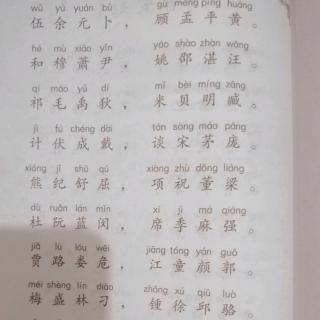 wǔ yú yuán bǔ gù mèng píng huáng
伍余元卜，顾孟平黄。
hé mù xiāo yǐn yáo shào zhàn wāng
和穆萧尹，姚邵湛汪。
qí máo yǔ dí mǐ bèi míng zāng
祁毛禹狄，米贝明臧。
jì fú chéng dài tán sòng máo páng
计伏成戴，谈宋茅庞。
xióng jǐ shū qū xiàng zhù dǒng liáng
熊纪舒屈，项祝董梁。
dù ruǎn lán mǐn xí jì má qiáng
杜阮蓝闵，席季麻强。
jiǎ lù lóu wēi jiāng tóng yán guō
贾路娄危，江童颜郭。
méi shèng lín diāo zhōng xú qiū luò
梅盛林刁，锺徐邱骆。